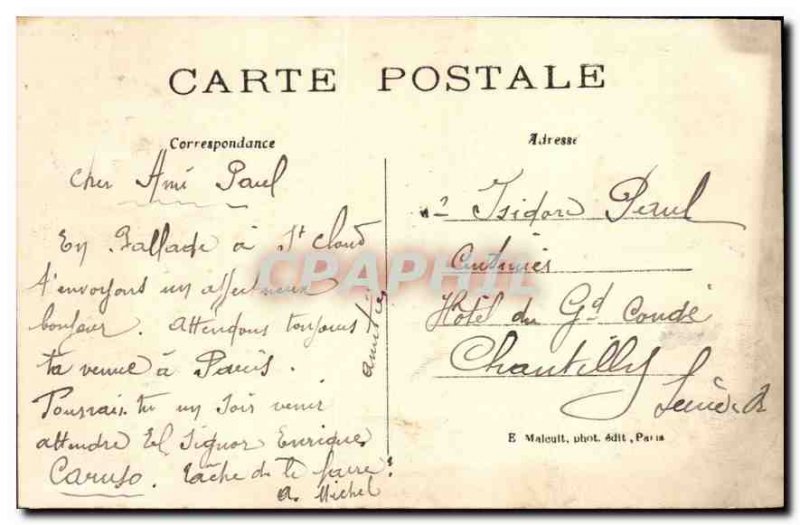 CARTE POSTALE
Correspondance
Cher Ami Paul
En Ballade à St Cloud
t'envoyons un affectueux
bonjour. Attendons toujours
ta venue à Paris.
Pourrais-tu un soir venir
attendre El Signor Enrique
Caruso. Tâche de le faire.
A. Michel
amitiés
Adresse
Isidore Paul
Hôtel du Gd Condé
Chantilly
E Malcuit, phot. édit, Paris
CPAPHIL